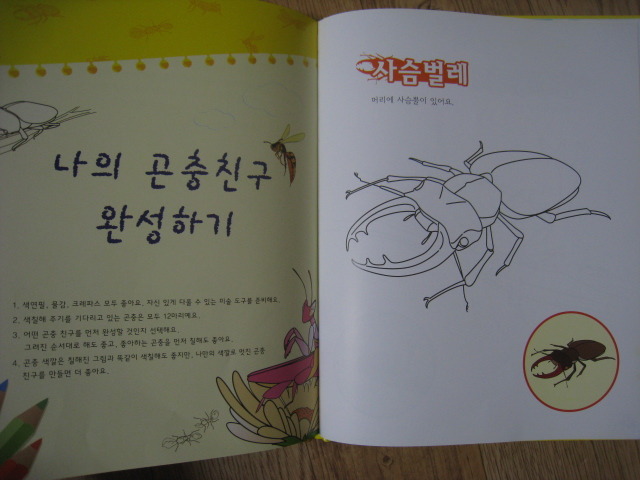 나의 곤충친구
완성하기
1. 색연필, 물감, 크레파스 모두 좋아요. 자신 있게 다룰 수 있는 미술 도구를 준비해요.
2. 색칠해 주기를 기다리고 있는 곤충은 모두 12마리예요.
3. 어떤 곤충 친구를 먼저 완성할 것인지 선택해요.
그려진 순서대로 해도 좋고, 좋아하는 곤충을 먼저 칠해도 좋아요.
4. 곤충 색깔은 칠해진 그림과 똑같이 색칠해도 좋지만, 나만의 색깔로 멋진 곤충
친구를 만들면 더 좋아요.
사슴벌레
머리에 사슴뿔이 있어요.